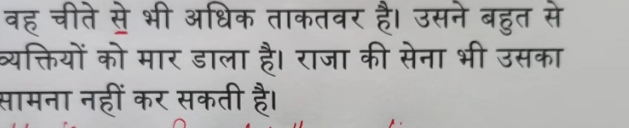 वह चीते से भी अधिक ताकतवर है। उसने बहुत से
व्यक्तियों को मार डाला है। राजा की सेना भी उसका
सामना नहीं कर सकती है।